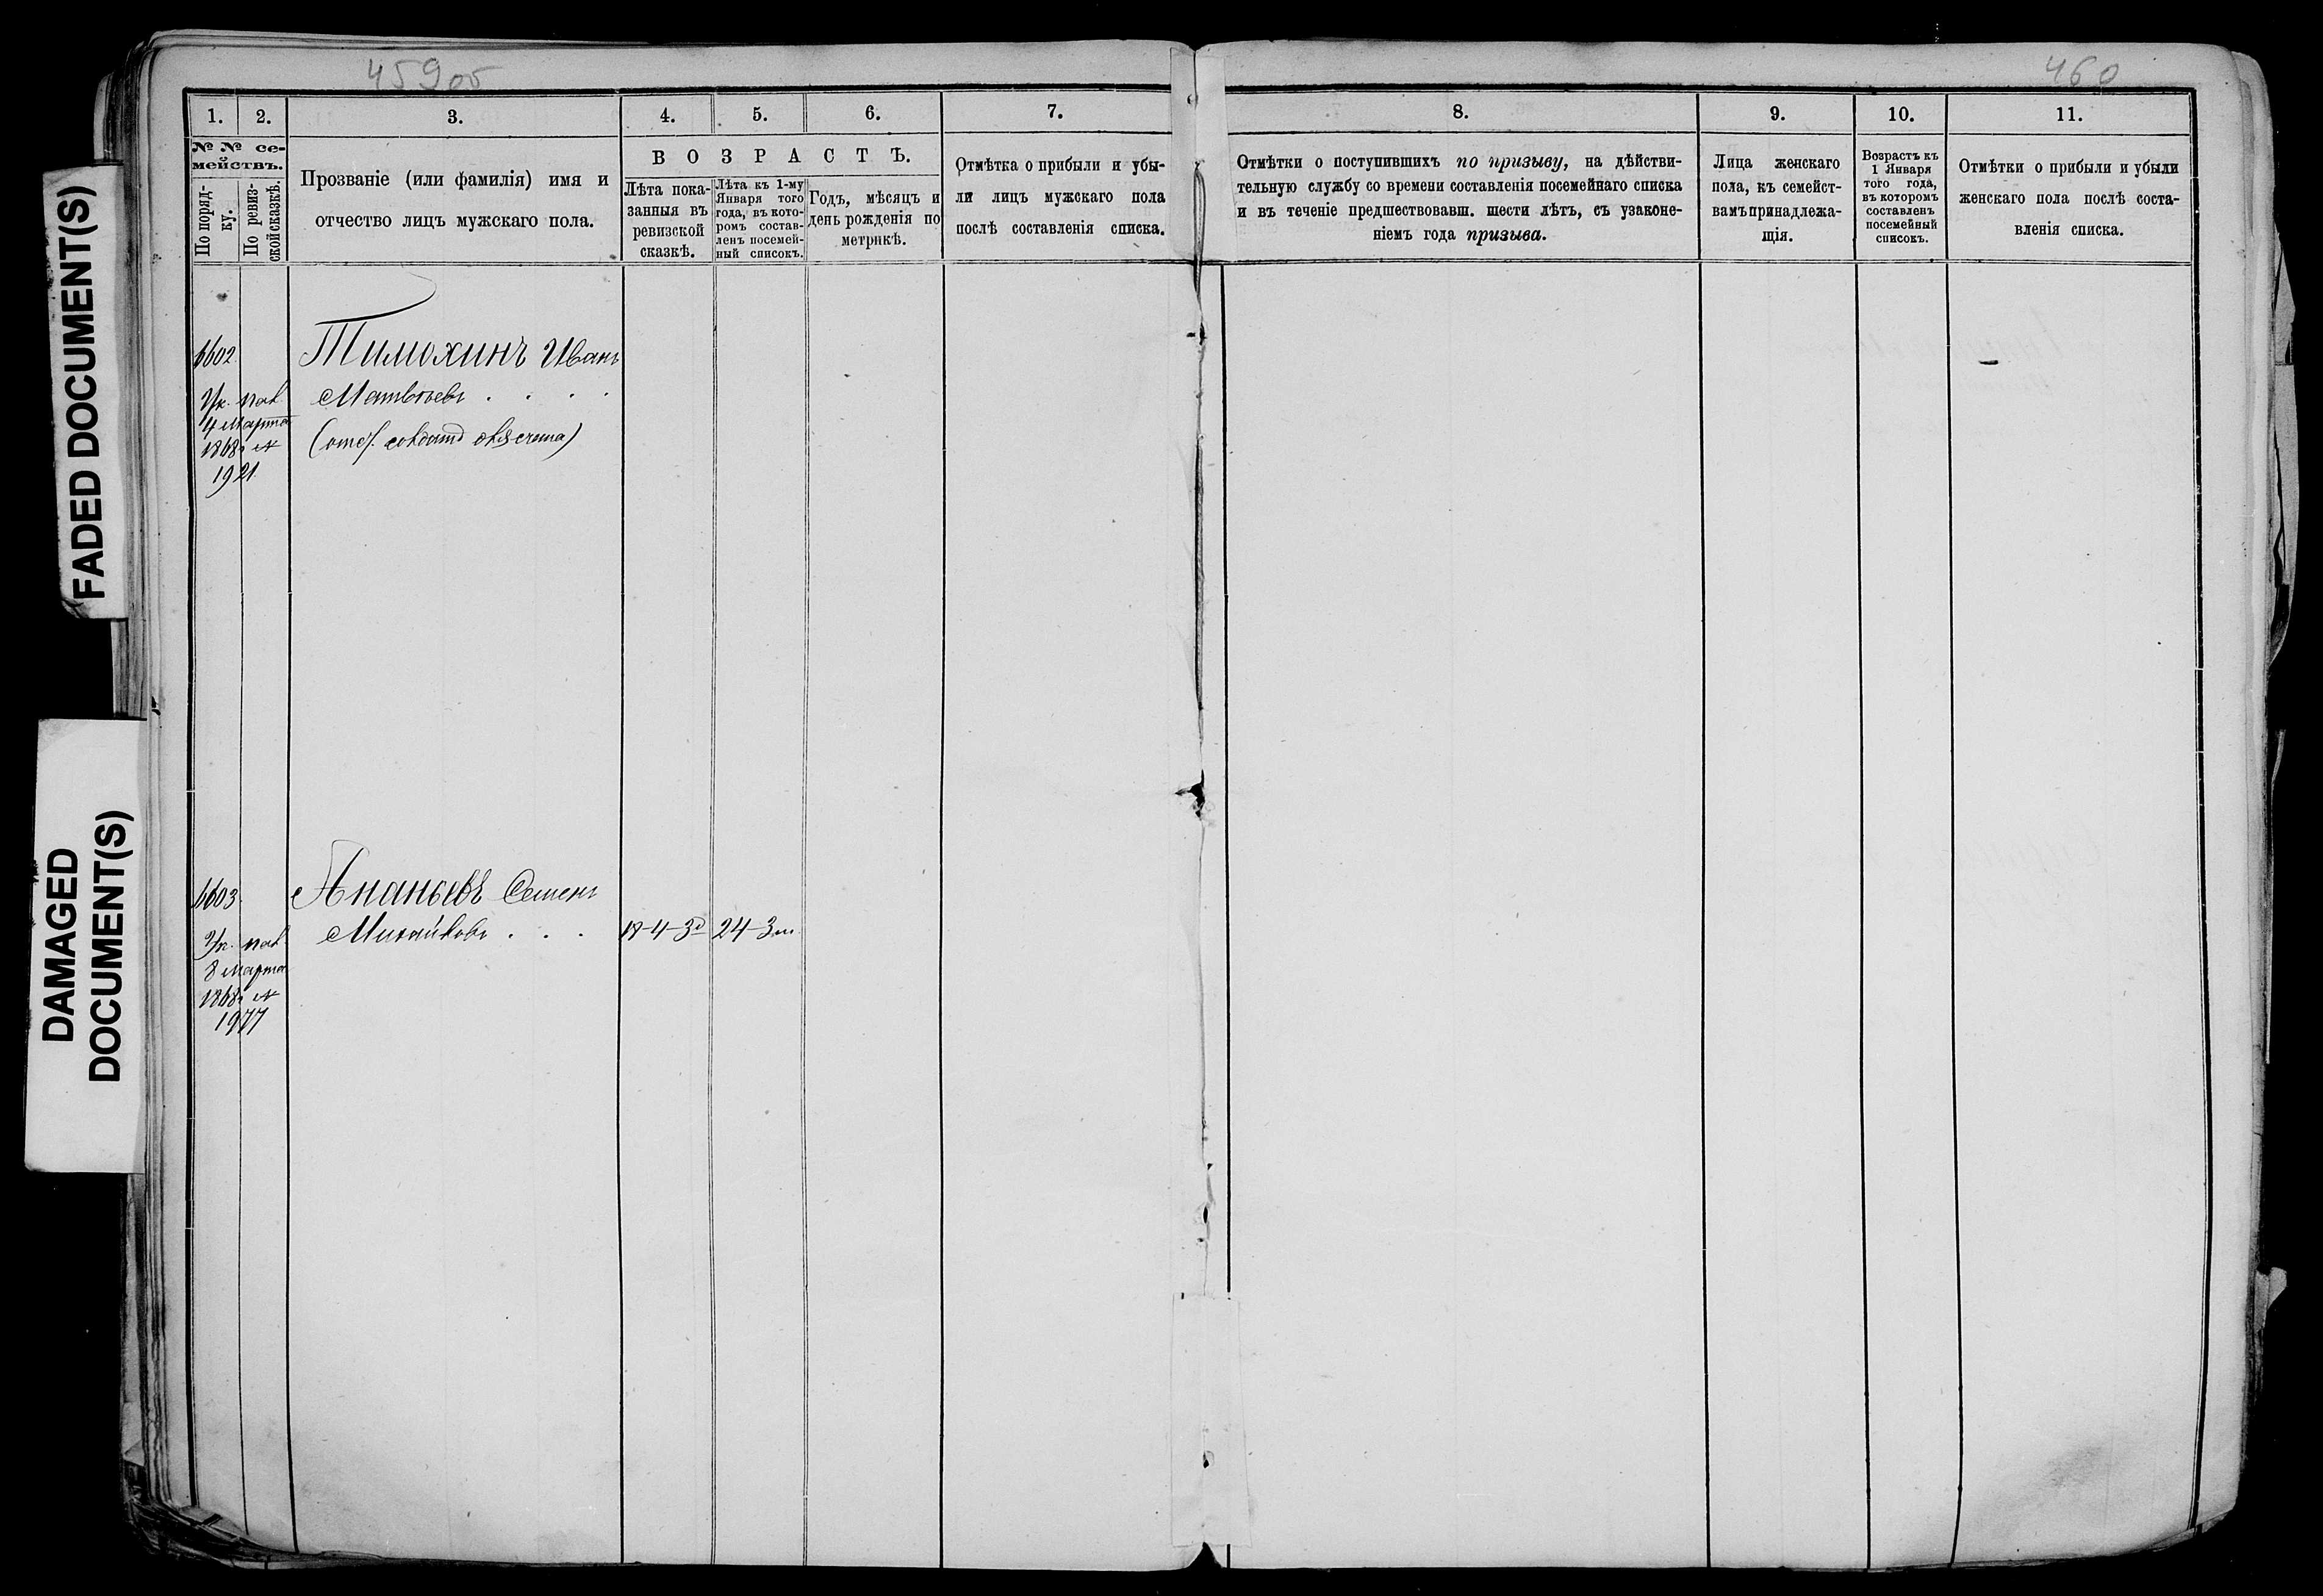 459об
460
FADED DOCUMENT(S)
DAMAGED
DOCUMENT(S)
1. 2. 3. 4. 5. 6. 7. 8. 9. 10. 11.
№ № се-
мействъ.
По поряд-
ку.
По ревиз-
ской сказкѣ.
Прозваніе (или фамилія) имя и
отчество лицъ мужскаго пола.
ВОЗРАСТЪ.
Лѣта пока-
занныя въ
ревизской
сказкѣ.
Лѣта къ 1-му
Января того
года, въ кото-
ромъ состав-
ленъ посемей-
ный списокъ.
Годъ, мѣсяцъ и
день рожденія по
метрикѣ.
Отмѣтка о прибыли и убы-
ли лицъ мужскаго пола
послѣ составленія списка.
Отмѣтки о поступившихъ по призыву, на дѣйстви-
тельную службу со времени составленія посемейнаго списка
и въ теченіе предшествовавш. шести лѣтъ, съ узаконе-
ніемъ года призыва.
Лица женскаго
пола, къ семейст-
вамъ принадлежа-
щія.
Возрастъ къ
1 Января
того года,
въ которомъ
составленъ
посемейный
списокъ.
Отмѣтки о прибыли и убыли
женскаго пола послѣ соста-
вленія списка.
6602. Тимохинъ Иванъ
Ук. пал. Матвѣевъ . . . .
4 марта
1868 г №
1921.
6603. Ананьевъ Семенъ
Ук. пал. Михайловъ . . . 18-4-3д 24-3м.
8 марта
1868 г №
1977